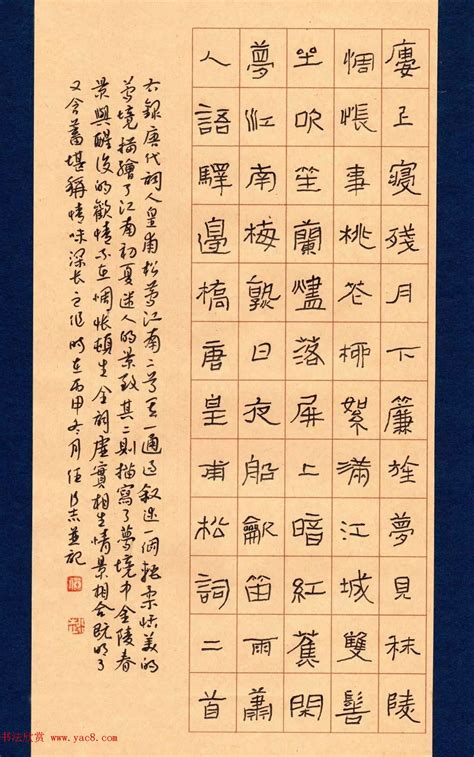 廔上寢殘月下簾旌夢見秣陵
惆悵事桃花柳絮滿江城雙髻
坐吹笙蘭燼落屏上暗紅蕉閑
夢江南梅熟日夜船龡笛雨蕭
人語驛邊橋唐皇甫松詞二首
右錄唐代詞人皇甫松夢江南二首其一通過叙述一個輕柔恬美的
夢境描繪了江南初夏迷人的景致其二則描寫了夢境中金陵春
景與醒後的歡情不在惆悵頓生全詞虛實相生情景相合既明了
又含蓄堪稱情味深長之作時在丙申冬月任志並記
书法欣赏 www.yac8.com